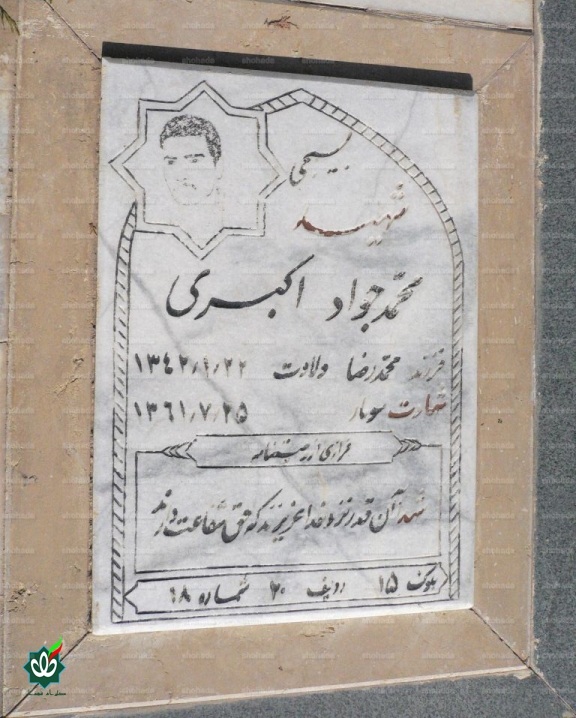 بسیجی
شهید
محمدجواد اکبری
فرزند محمدرضا ولادت ۱۳٤۲/۱/۲۲
شهادت سومار ۱۳٦۱/۷/۲۵
فرازی از وصیتنامه
شهدا آن قدر نزد خدا عزیزند که حق شفاعت دارند
بلوک ۱۵ ردیف ۲۰ شماره ۱۸